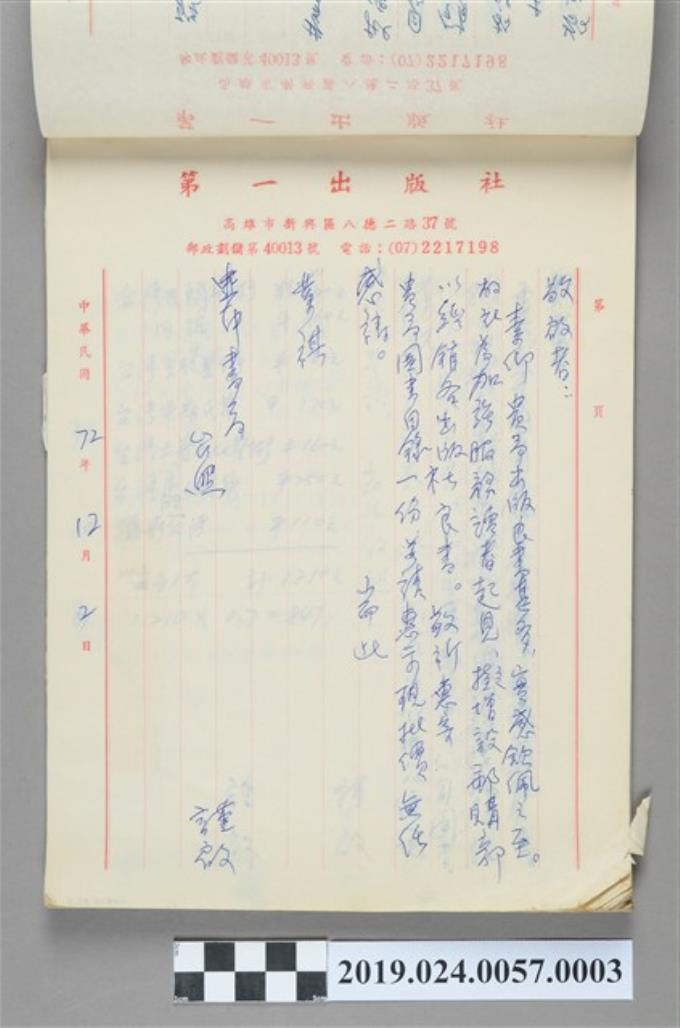 第一出版社
高雄市新興區八德二路37號
郵政劃儲第40013號 電話：(07)2217198
第 頁
敬啟者：
素仰 貴局出版良書甚多，實感欽佩之至。
為加強服務讀者起見，擬增設郵購部
以經銷各出版社良書。敬祈惠寄
貴局圖書目錄一份並請惠示現批價無任
感禱。 耑此
業祺
書局
公照
謹啟
中華民國72年12月2日
2019.024.0057.0003